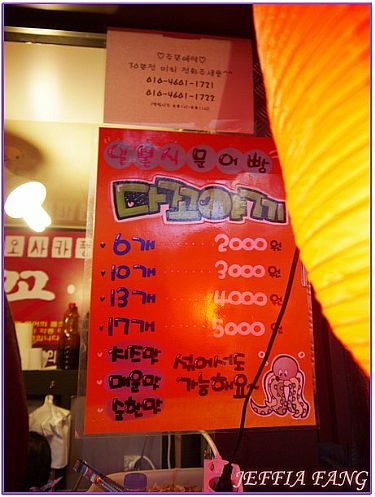 ♡주문예약♡
30분전 미리 전화주세용^^
010-4601-1721
010-4601-1722
문어빵
타꼬야끼
6개 2000원
10개 3000원
13개 4000원
17개 5000원
치즈맛
매운맛
순한맛
섞어서도
가능해요~
오사카
꼬
JEFFIA FANG